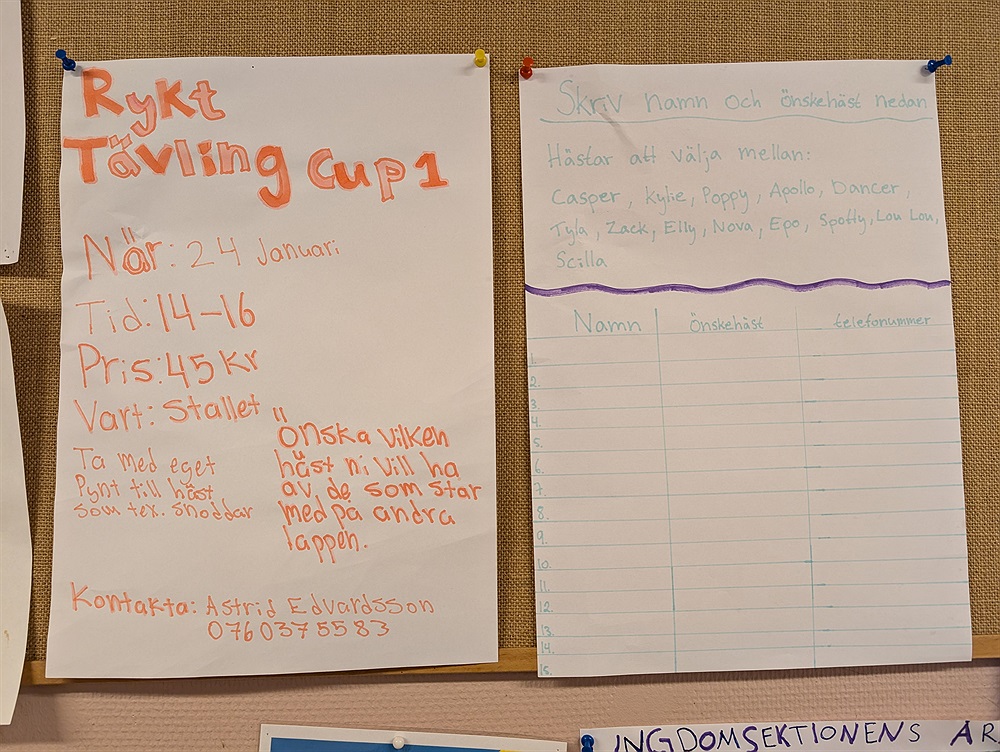 Rykt
Tävling Cup 1
När: 24 Januari
Tid: 14-16
Pris: 45 kr
Vart: Stallet
Ta med eget
Pynt till häst
som tex. snoddar
Önska vilken
häst ni vill ha
av de som står
med på andra
lappen.
Kontakta: Astrid Edvardsson
0760375583
Skriv namn och önskehäst nedan
Hästar att välja mellan:
Casper, Kylie, Poppy, Apollo, Dancer,
Tyla, Zack, Elly, Nova, Epo, Spotty, Lou Lou,
Scilla
Namn önskehäst telefonummer
1.
2.
3.
4.
5.
6.
7.
8.
9.
10.
11.
12.
13.
14.
15.
INGDOMSEKTIONENS ÅR